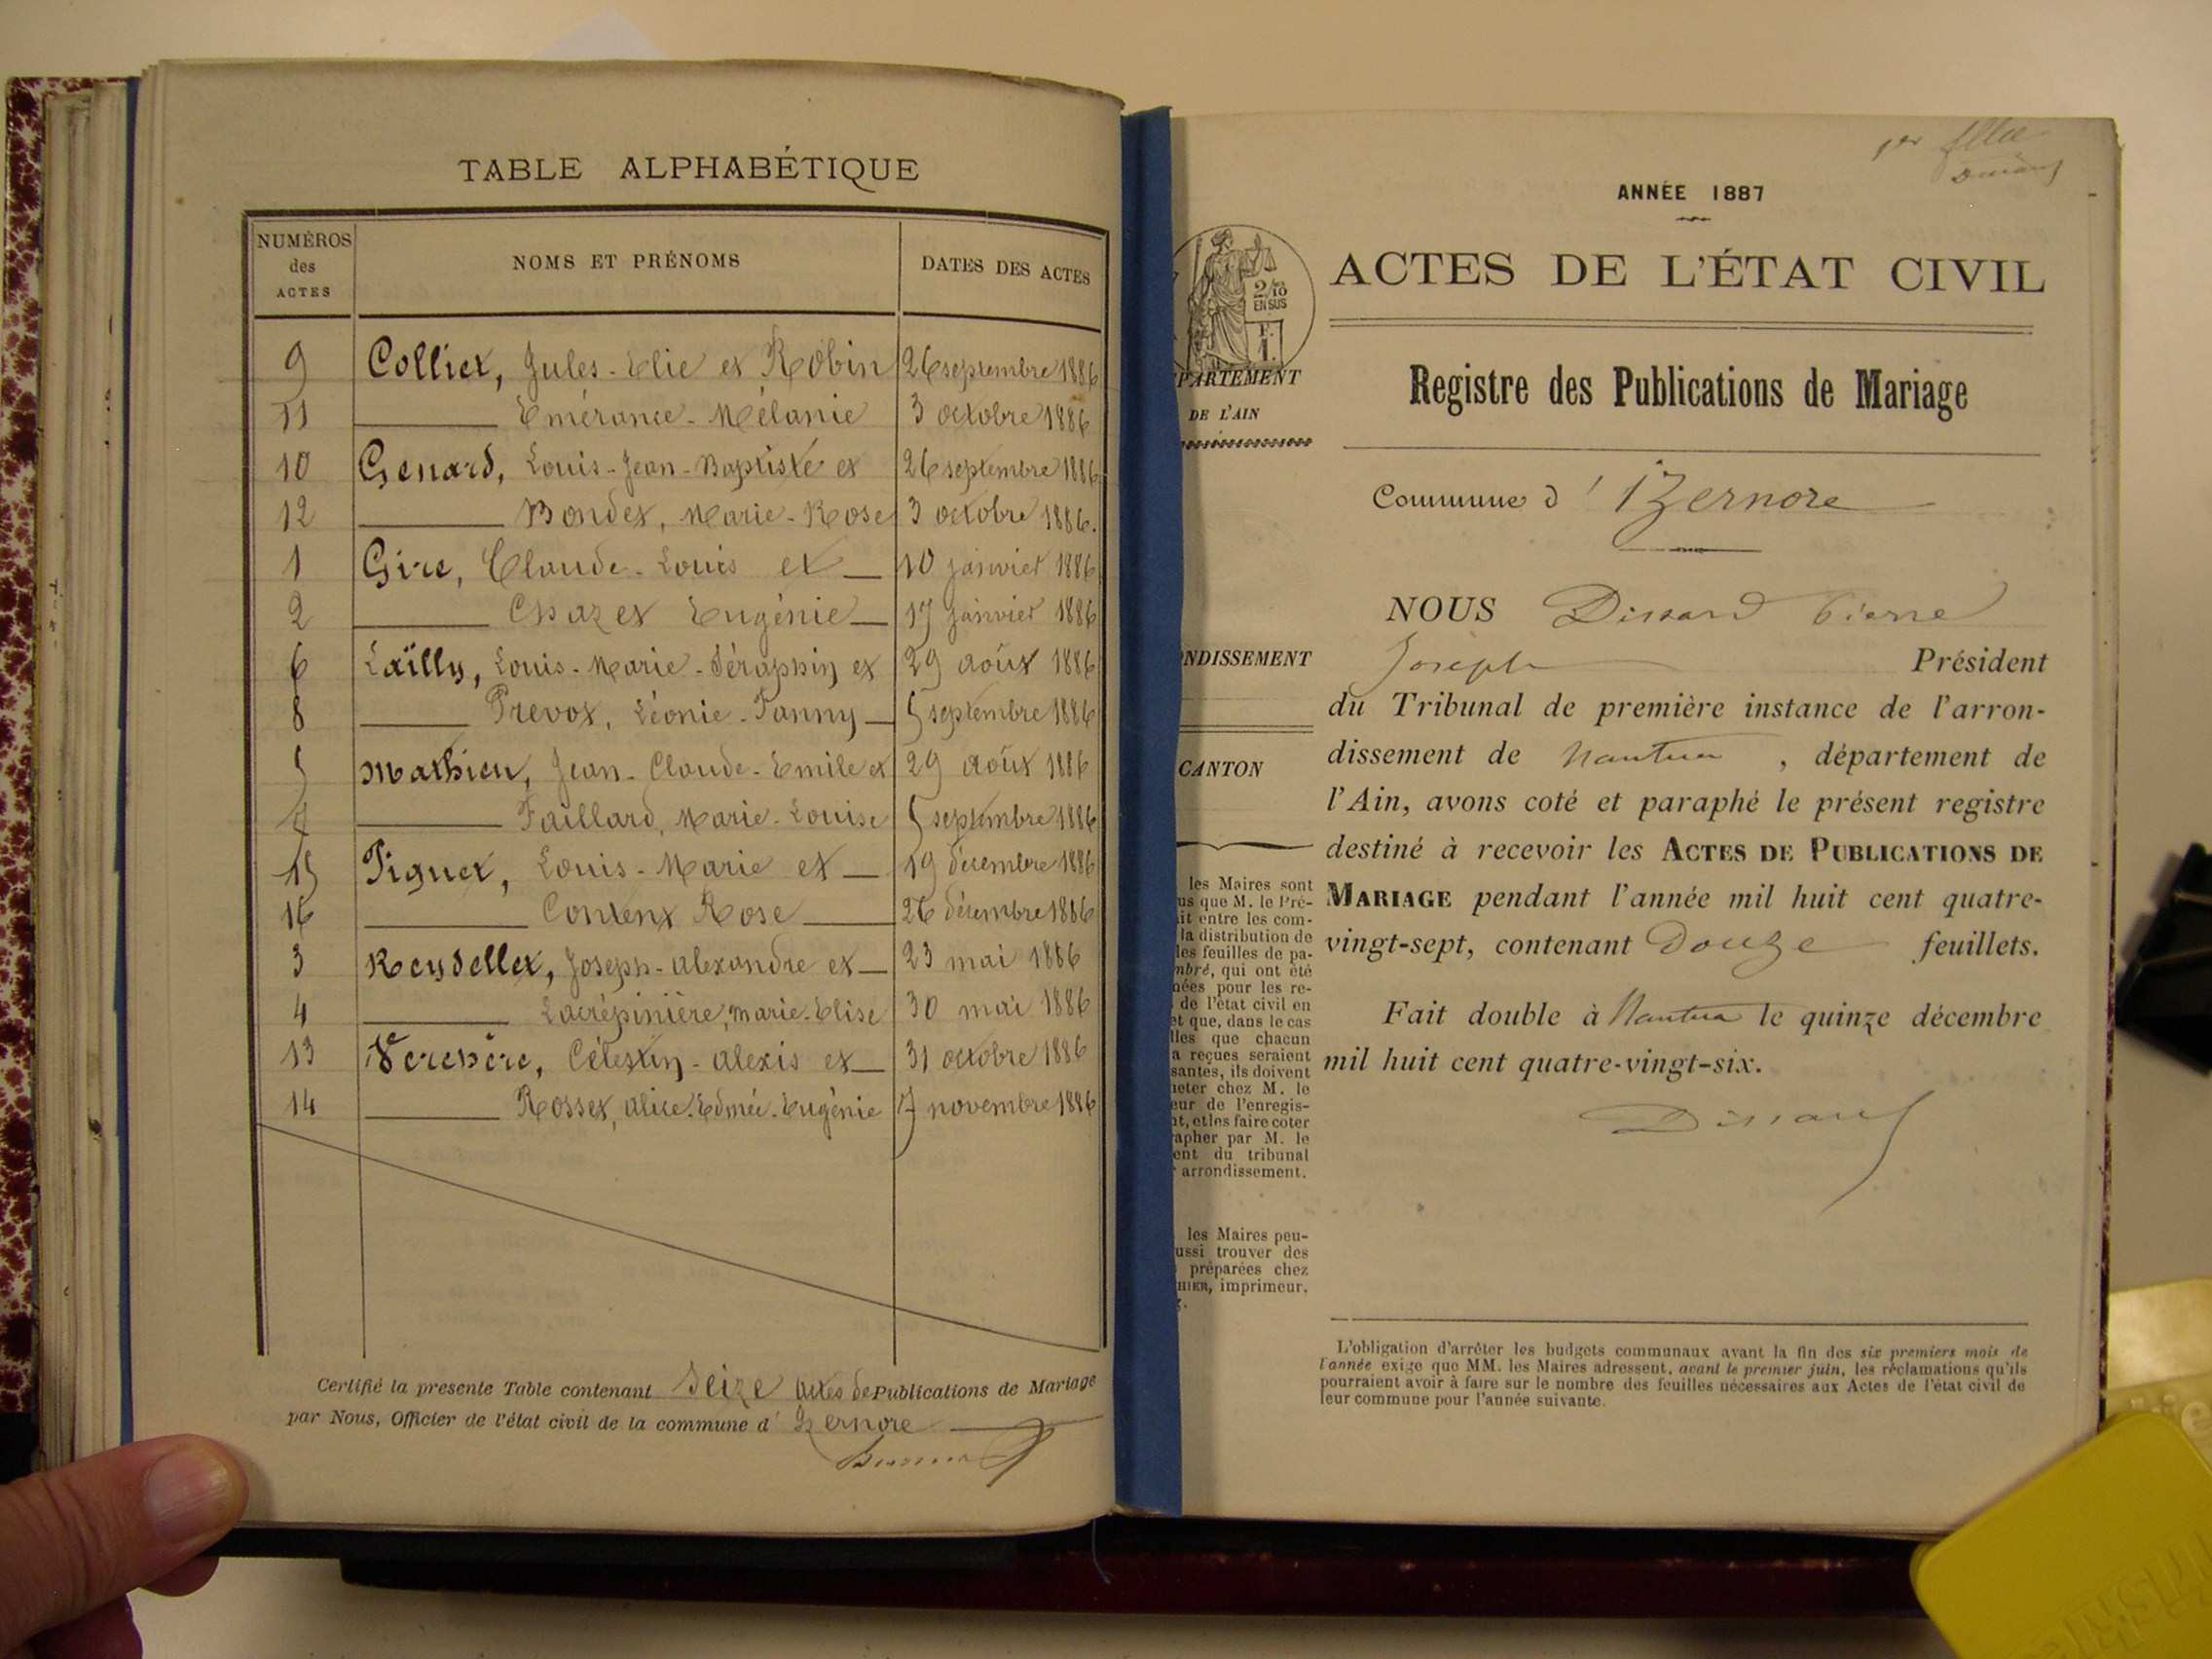 TABLE ALPHABÉTIQUE
NUMÉROS des ACTES NOMS ET PRÉNOMS DATES DES ACTES
9 Colliet, Jules-Elie et Robin 26 septembre 1886
11 Emérance-Mélanie 3 octobre 1886
10 Genard, Louis-Jean-Baptiste et 26 septembre 1886
12 Bondet, Marie-Rose 3 octobre 1886.
1 Gire, Claude-Louis et 10 janvier 1886
2 Chazet Eugénie 17 janvier 1886
6 Laïlly, Louis-Marie-Séraphin et 29 août 1886
8 Prevot, Léonie-Fanny 5 septembre 1886
5 Mathieu, Jean-Claude-Emile et 29 août 1886
7 Faillard, Marie-Louise 5 septembre 1886
15 Piguet, Louis-Marie et 19 décembre 1886
16 Content Rose 26 décembre 1886
3 Reydellet, Joseph-Alexandre et 23 mai 1886
4 Lacrépinière, Marie-Elise 30 mai 1886
13 Verchère, Célestin-Alexis et 31 octobre 1886
14 Rosset, Alice-Edmée-Eugénie 7 novembre 1886
Certifié la presente Table contenant Seize actes de Publications de Mariage
par Nous, Officier de l'état civil de la commune d' Izernore
ANNÉE 1887
2/10
EN SUS
F.
1.
PARTEMENT
DE L'AIN
NDISSEMENT
CANTON
les Maires sont
us que M. le Pré-
it entre les com-
la distribution de
les feuilles de pa-
mbré, qui ont été
nées pour les re-
de l'état civil en
et que, dans le cas
lles que chacun
a reçues seraient
santes, ils doivent
heter chez M. le
eur de l'enregis-
nt, et les faire coter
apher par M. le
ent du tribunal
arrondissement.
les Maires peu-
ussi trouver des
préparées chez
HIER, imprimeur.
ACTES DE L'ÉTAT CIVIL
Registre des Publications de Mariage
Commune d' Izernore
NOUS Dissard Pierre
Joseph Président
du Tribunal de première instance de l'arron-
dissement de Nantua, département de
l'Ain, avons coté et paraphé le présent registre
destiné à recevoir les ACTES DE PUBLICATIONS DE
MARIAGE pendant l'année mil huit cent quatre-
vingt-sept, contenant Douze feuillets.
Fait double à Nantua le quinze décembre
mil huit cent quatre-vingt-six.
Dissard
L'obligation d'arrêter les budgets communaux avant la fin des six premiers mois de
l'année exige que MM. les Maires adressent, avant le premier juin, les réclamations qu'ils
pourraient avoir à faire sur le nombre des feuilles nécessaires aux Actes de l'état civil de
leur commune pour l'année suivante.